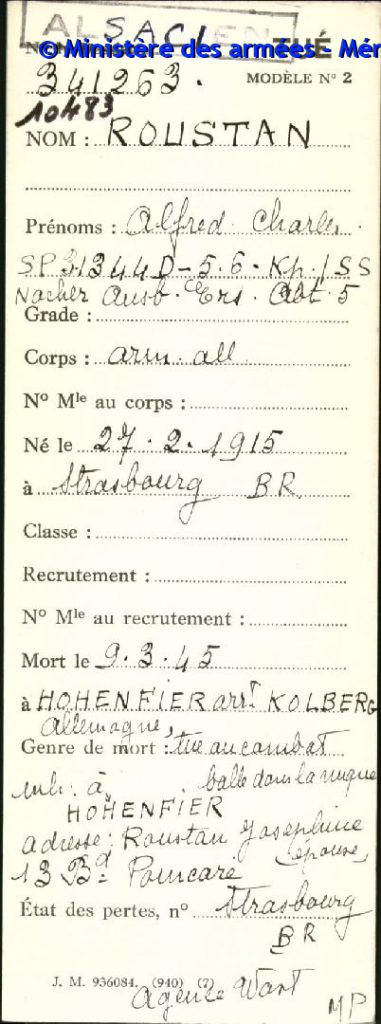 ALSACIEN
© Ministère des armées - Mér
341263.
MODÈLE N° 2
10483
NOM : ROUSTAN
Prénoms : Alfred Charles.
SP 31344D - 5.6. Kp. / SS
Nacher Ausb. Ers. Abt 5
Grade :
Corps : arm. all
N° Mle au corps :
Né le 27.2.1915
à Strasbourg BR
Classe :
Recrutement :
N° Mle au recrutement :
Mort le 9.3.45
à HOHENFIER arrt KOLBERG
Allemagne,
Genre de mort : tué au combat
balle dans la nuque
inh. à
HOHENFIER
adresse : Roustan Josephine
(épouse)
13 Bd Poincaré
État des pertes, n° Strasbourg
BR
J. M. 936084. (940) (7)
Agence Wast
MP